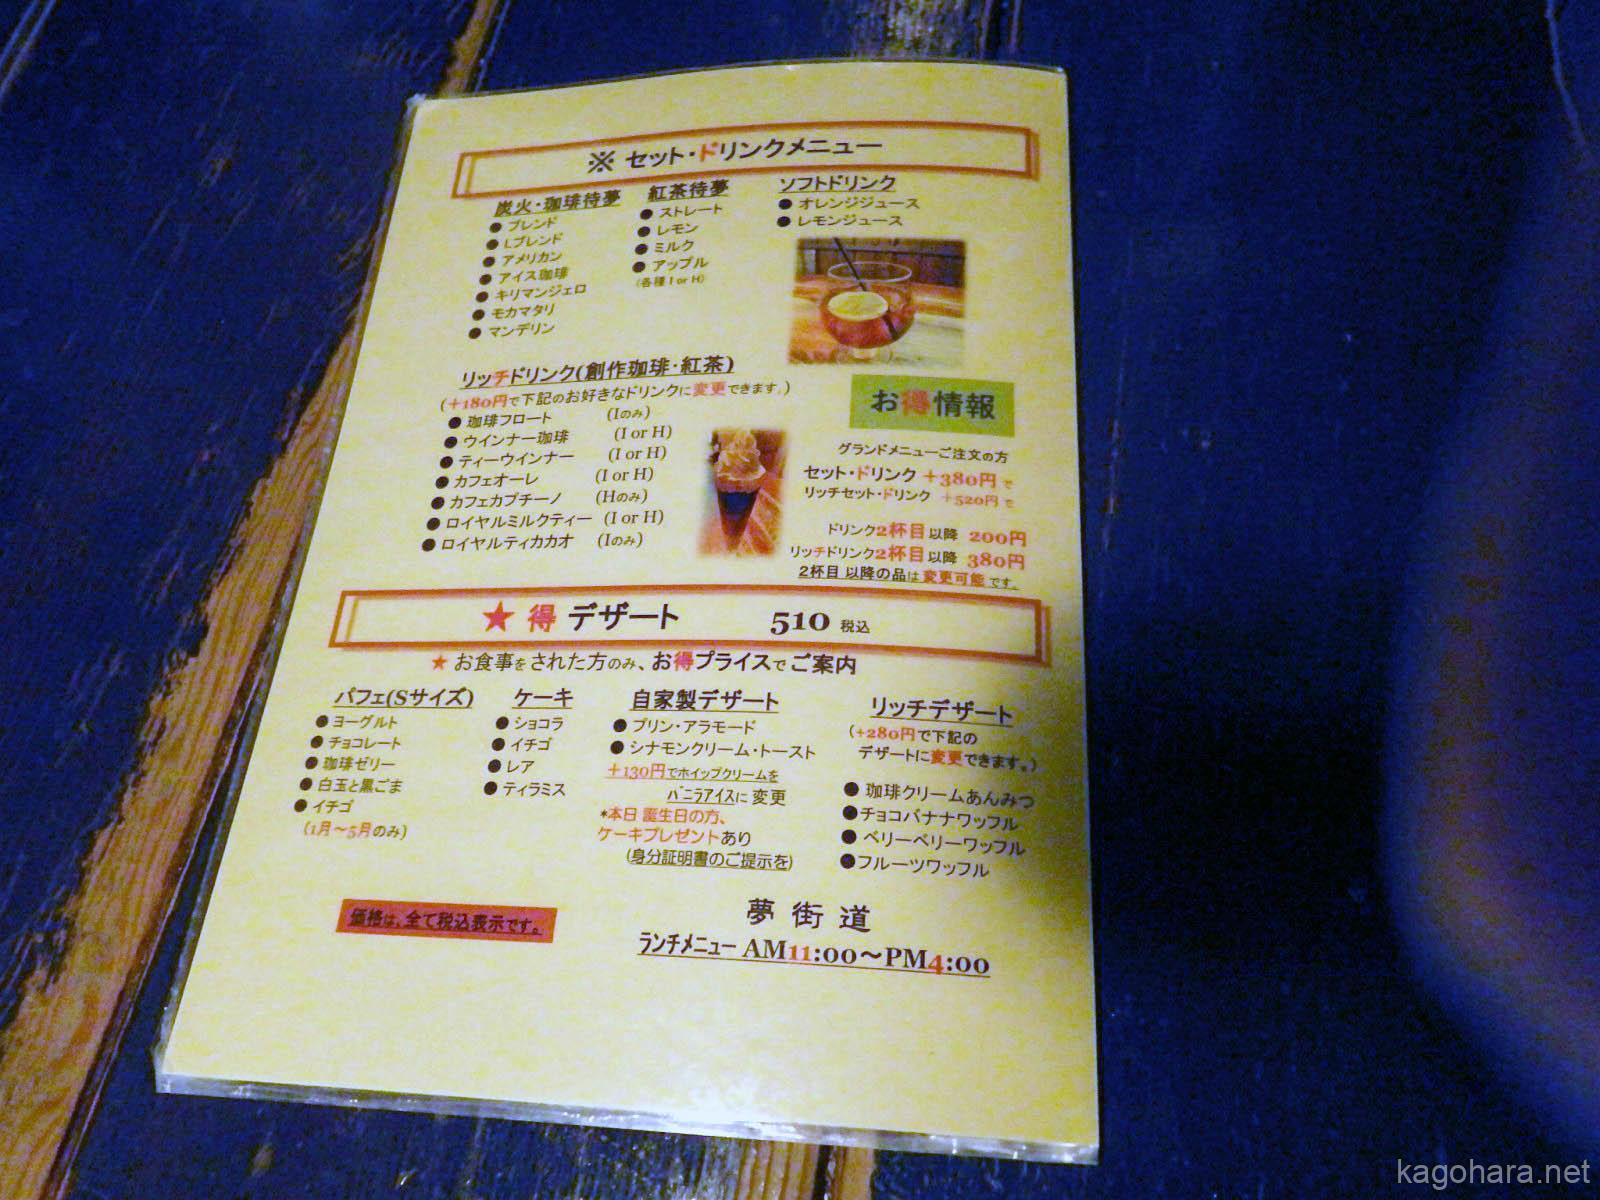 ※ セット・ドリンクメニュー
炭火・珈琲待夢
● ブレンド
● Lブレンド
● アメリカン
● アイス珈琲
● キリマンジェロ
● モカマタリ
● マンデリン
紅茶待夢
● ストレート
● レモン
● ミルク
● アップル
(各種 I or H)
ソフトドリンク
● オレンジジュース
● レモンジュース
リッチドリンク(創作珈琲・紅茶)
(+180円で下記のお好きなドリンクに変更できます。)
● 珈琲フロート (Iのみ)
● ウインナー珈琲 (I or H)
● ティーウインナー (I or H)
● カフェオーレ (I or H)
● カフェカプチーノ (Hのみ)
● ロイヤルミルクティー (I or H)
● ロイヤルティカカオ (Iのみ)
お得情報
グランドメニューご注文の方
セット・ドリンク +380円で
リッチセット・ドリンク +520円で
ドリンク2杯目以降 200円
リッチドリンク2杯目以降 380円
2杯目 以降の品は変更可能です。
★ 得 デザート 510 税込
★ お食事をされた方のみ、お得プライスでご案内
パフェ(Sサイズ)
● ヨーグルト
● チョコレート
● 珈琲ゼリー
● 白玉と黒ごま
● イチゴ
(1月〜5月のみ)
ケーキ
● ショコラ
● イチゴ
● レア
● ティラミス
自家製デザート
● プリン・アラモード
● シナモンクリーム・トースト
+130円でホイップクリームを
バニラアイスに変更
*本日 誕生日の方、
ケーキプレゼントあり
(身分証明書のご提示を)
リッチデザート
(+280円で下記の
デザートに変更できます。)
● 珈琲クリームあんみつ
●チョコバナナワッフル
● ベリーベリーワッフル
●フルーツワッフル
価格は、全て税込表示です。
夢 街 道
ランチメニュー AM11:00〜PM4:00
kagohara.net